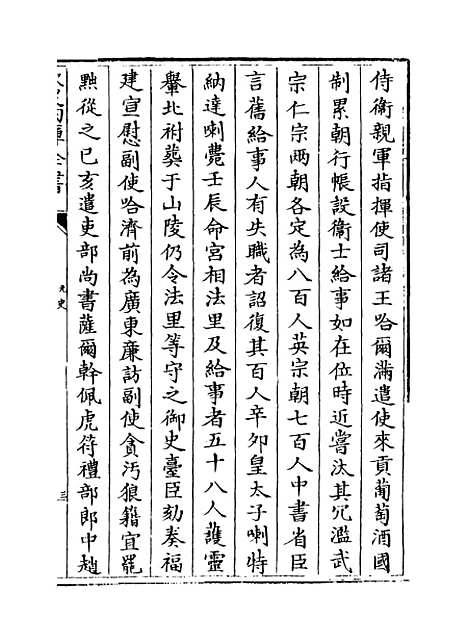 侍衛親軍指揮使司諸王哈爾滿遣使來貢葡萄酒國
制累朝行帳設衞士給事如在位時近嘗汰其冗濫武
宗仁宗兩朝各定為八百人英宗朝七百人中書省臣
言舊給事人有失職者詔復其百人辛夘皇太子喇特
納達喇薨壬辰命宮相法里及給事者五十八人護靈
轝北祔葬于山陵仍令法里等守之御史臺臣劾奏福
建宣慰副使哈濟前為廣東廉訪副使貪污狼籍宜罷
黜從之己亥遣吏部尚書薩爾幹佩虎符禮部郎中趙
元史
三